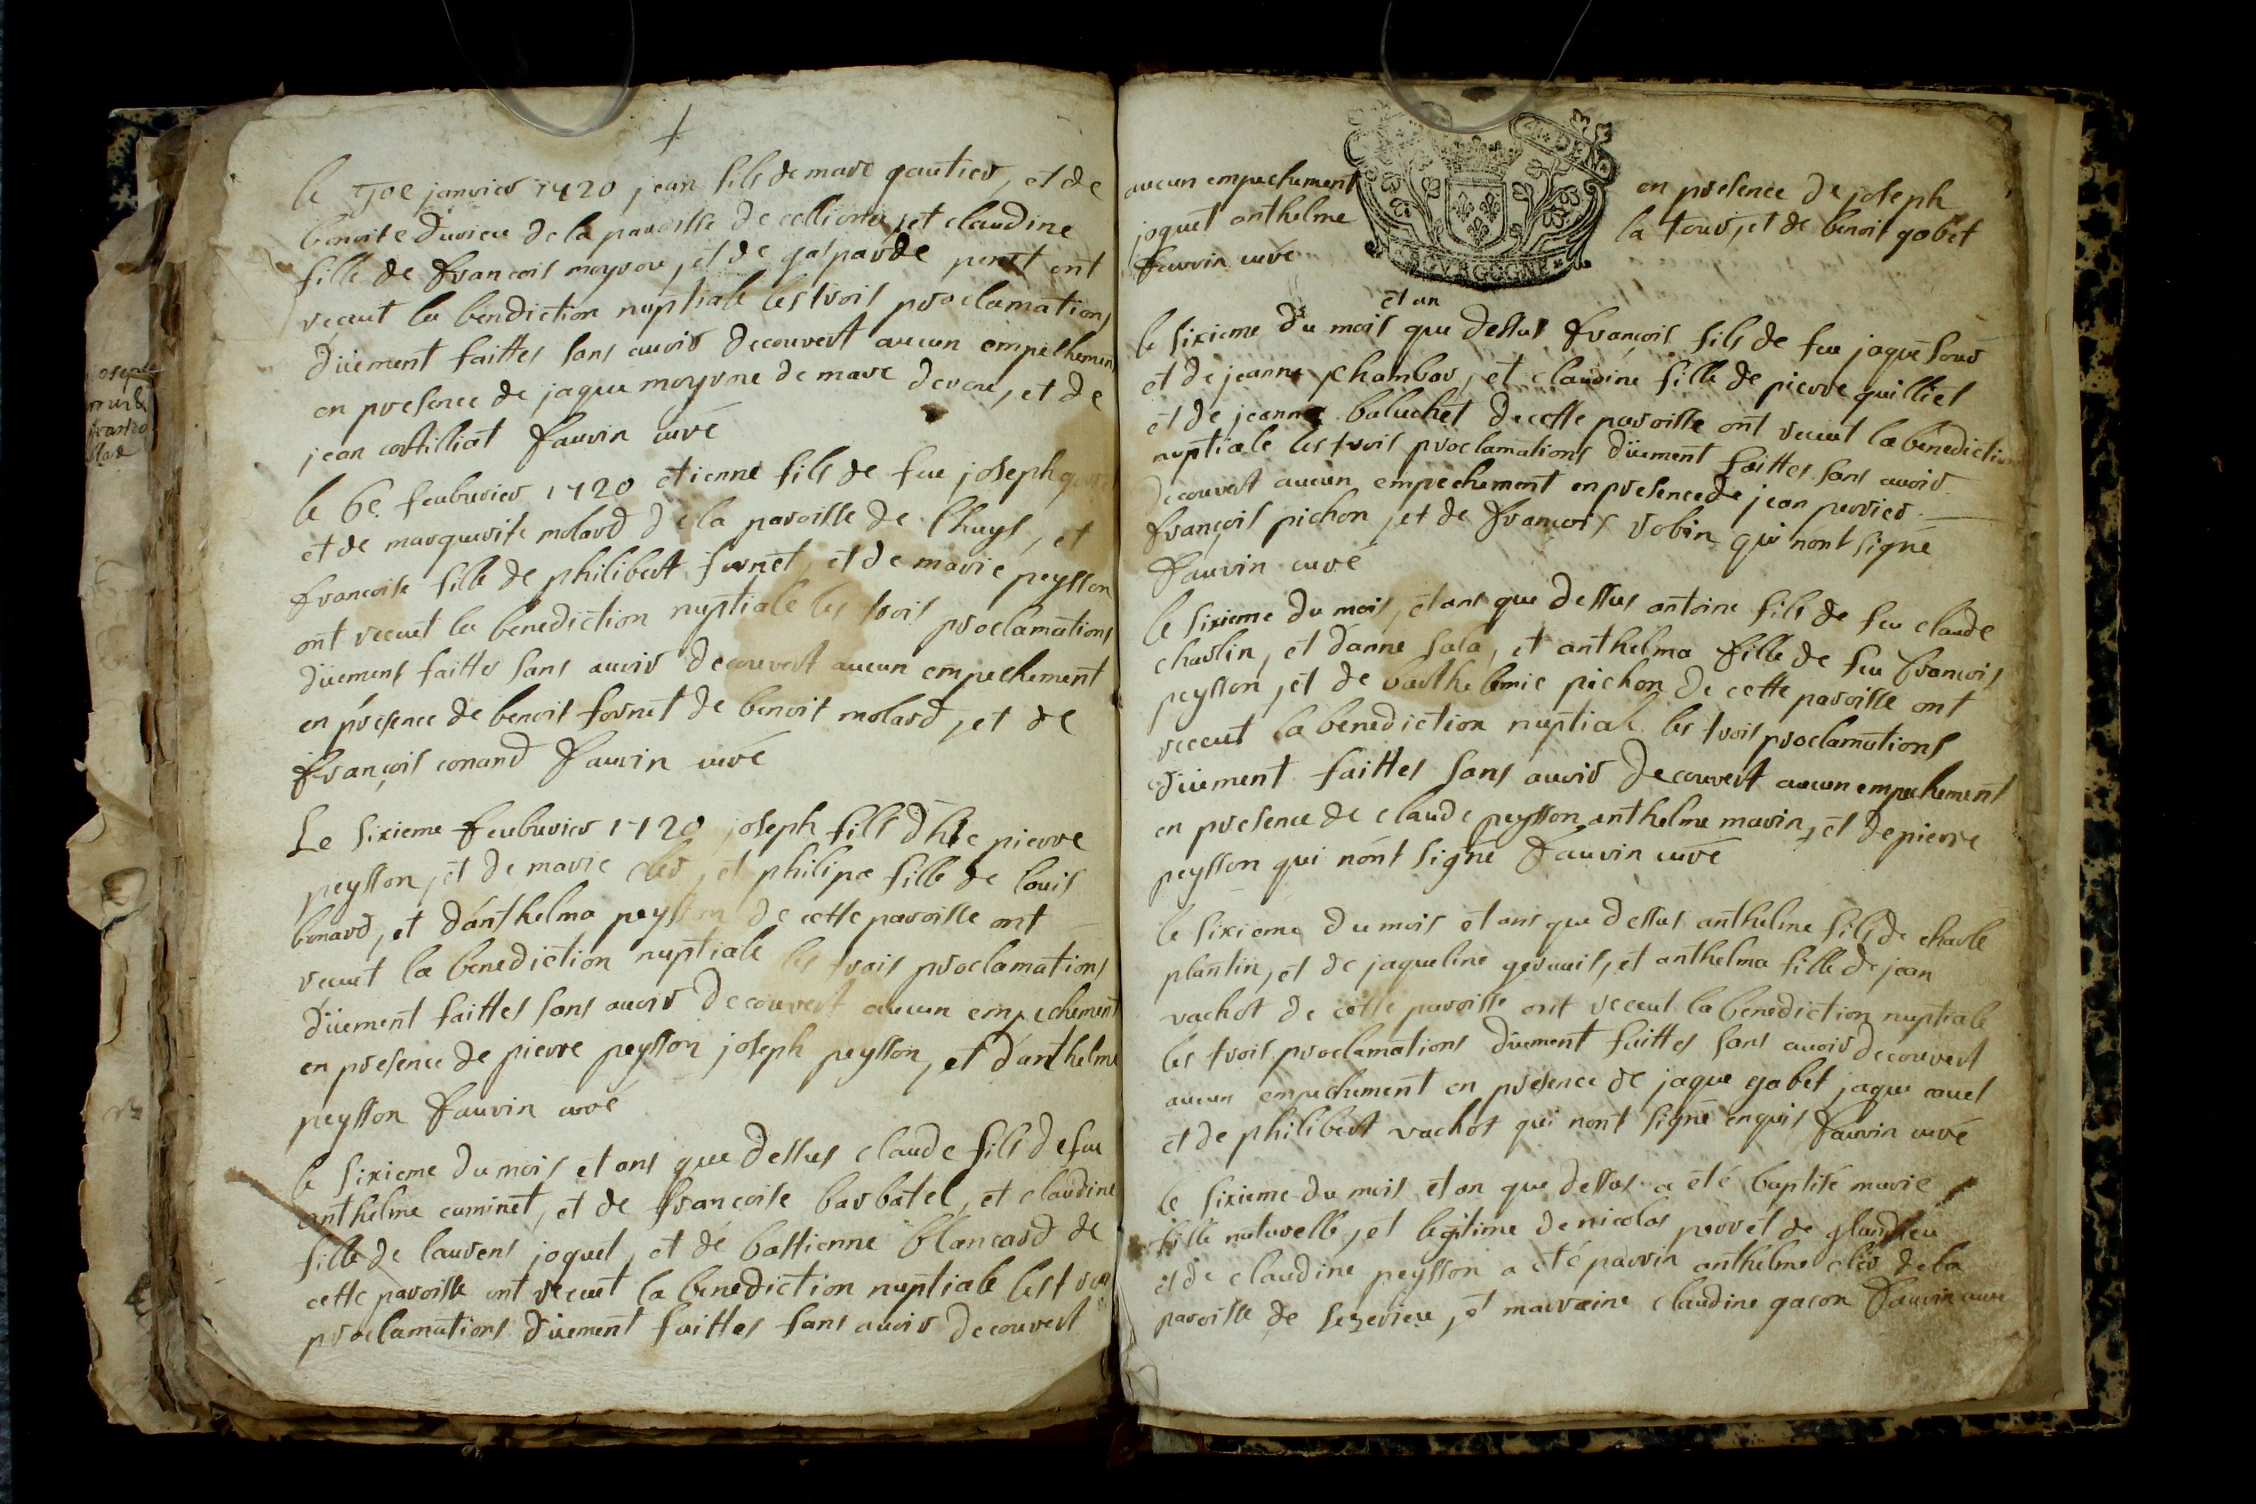 le janvier 1720 jean fils de marc gautier, et de
benoite durieu de la paroisse de et claudine
fille de françois, et de gasparde ont
receut la bendiction nuptiale les trois proclamations
düement faittes sans auoir decouvert aucun empechemen
en presence de jaque de marc, et de
jean Fauvin curé
le 6e feubvrier 1720 etienne fils de feu joseph
et de marguerite molard de la paroisse de lhuys, et
françoise fille de philibert fornet, et de marie peysson
ont receut la benediction nuptiale les trois proclamations
düement faittes sans auoir decouvert aucun empechement
en presence de benoit fornet de benoit molard, et de
françois conand Fauvin curé
Le sixieme feubvrier 1720 joseph fils pierre
peysson, et de marie cler, et philipa fille de louis
benard, et d'anthelma peysson de cette paroisse ont
receut la benediction nuptiale les trois proclamations
düement faittes sans auoir decouvert aucun empechement
en presence de pierre peysson joseph peysson, et d'anthelme
peysson Fauvin curé
le sixieme du mois et ans que dessus claude fils de feu
anthelme cuminet, et de françoise barbatel, et claudine
fille de laurens joquet, et de bastienne blancard de
cette paroisse ont receut la benediction nuptiale les trois
proclamations düement faittes sans auoir decouvert
aucun empechement en presence de joseph
joquet anthelme la tour, et de benoit gobet
Fauvin curé
BOURGOGNE
et an
le sixieme du mois que dessus françois fils de feu jaque
et de jeanne chambar, et claudine fille de pierre guilliet
et de jeanne baluchet de cette paroisse ont receut la benediction
nuptiale les trois proclamations düement faittes sans auoir
decouvert aucun empechement en presence de jean perrier
françois pichon, et de françois robin qui n'ont signé
Fauvin curé
le sixieme du mois, et ans que dessus antoine fils de feu claude
charlin, et d'anne sala, et anthelma fille de feu françois
peysson, et de barthelemie pichon de cette paroisse ont
receut la benediction nuptiale les trois proclamations
düement faittes sans auoir decouvert aucun empechement
en presence de claude peysson anthelme marin, et de pierre
peysson qui n'ont signé Fauvin curé
le sixieme du mois et ans que dessus anthelme fils de charle
plantin, et de jaqueline geruais, et anthelma fille de jean
vachot de cette paroisse ont receut la benediction nuptiale
les trois proclamations düement faittes sans auoir decouvert
aucun empechement en presence de jaque gabet jaque
et de philibert vachot qui nont signé enquis Fauvin curé
le sixieme du mois et an que dessus a été baptisé marie
fille naturelle, et legitime de nicolas perret de glandieu
et de claudine peysson a été parrin anthelme cler de la
paroisse de sezerieu, et marraine claudine gacon Fauvin curé